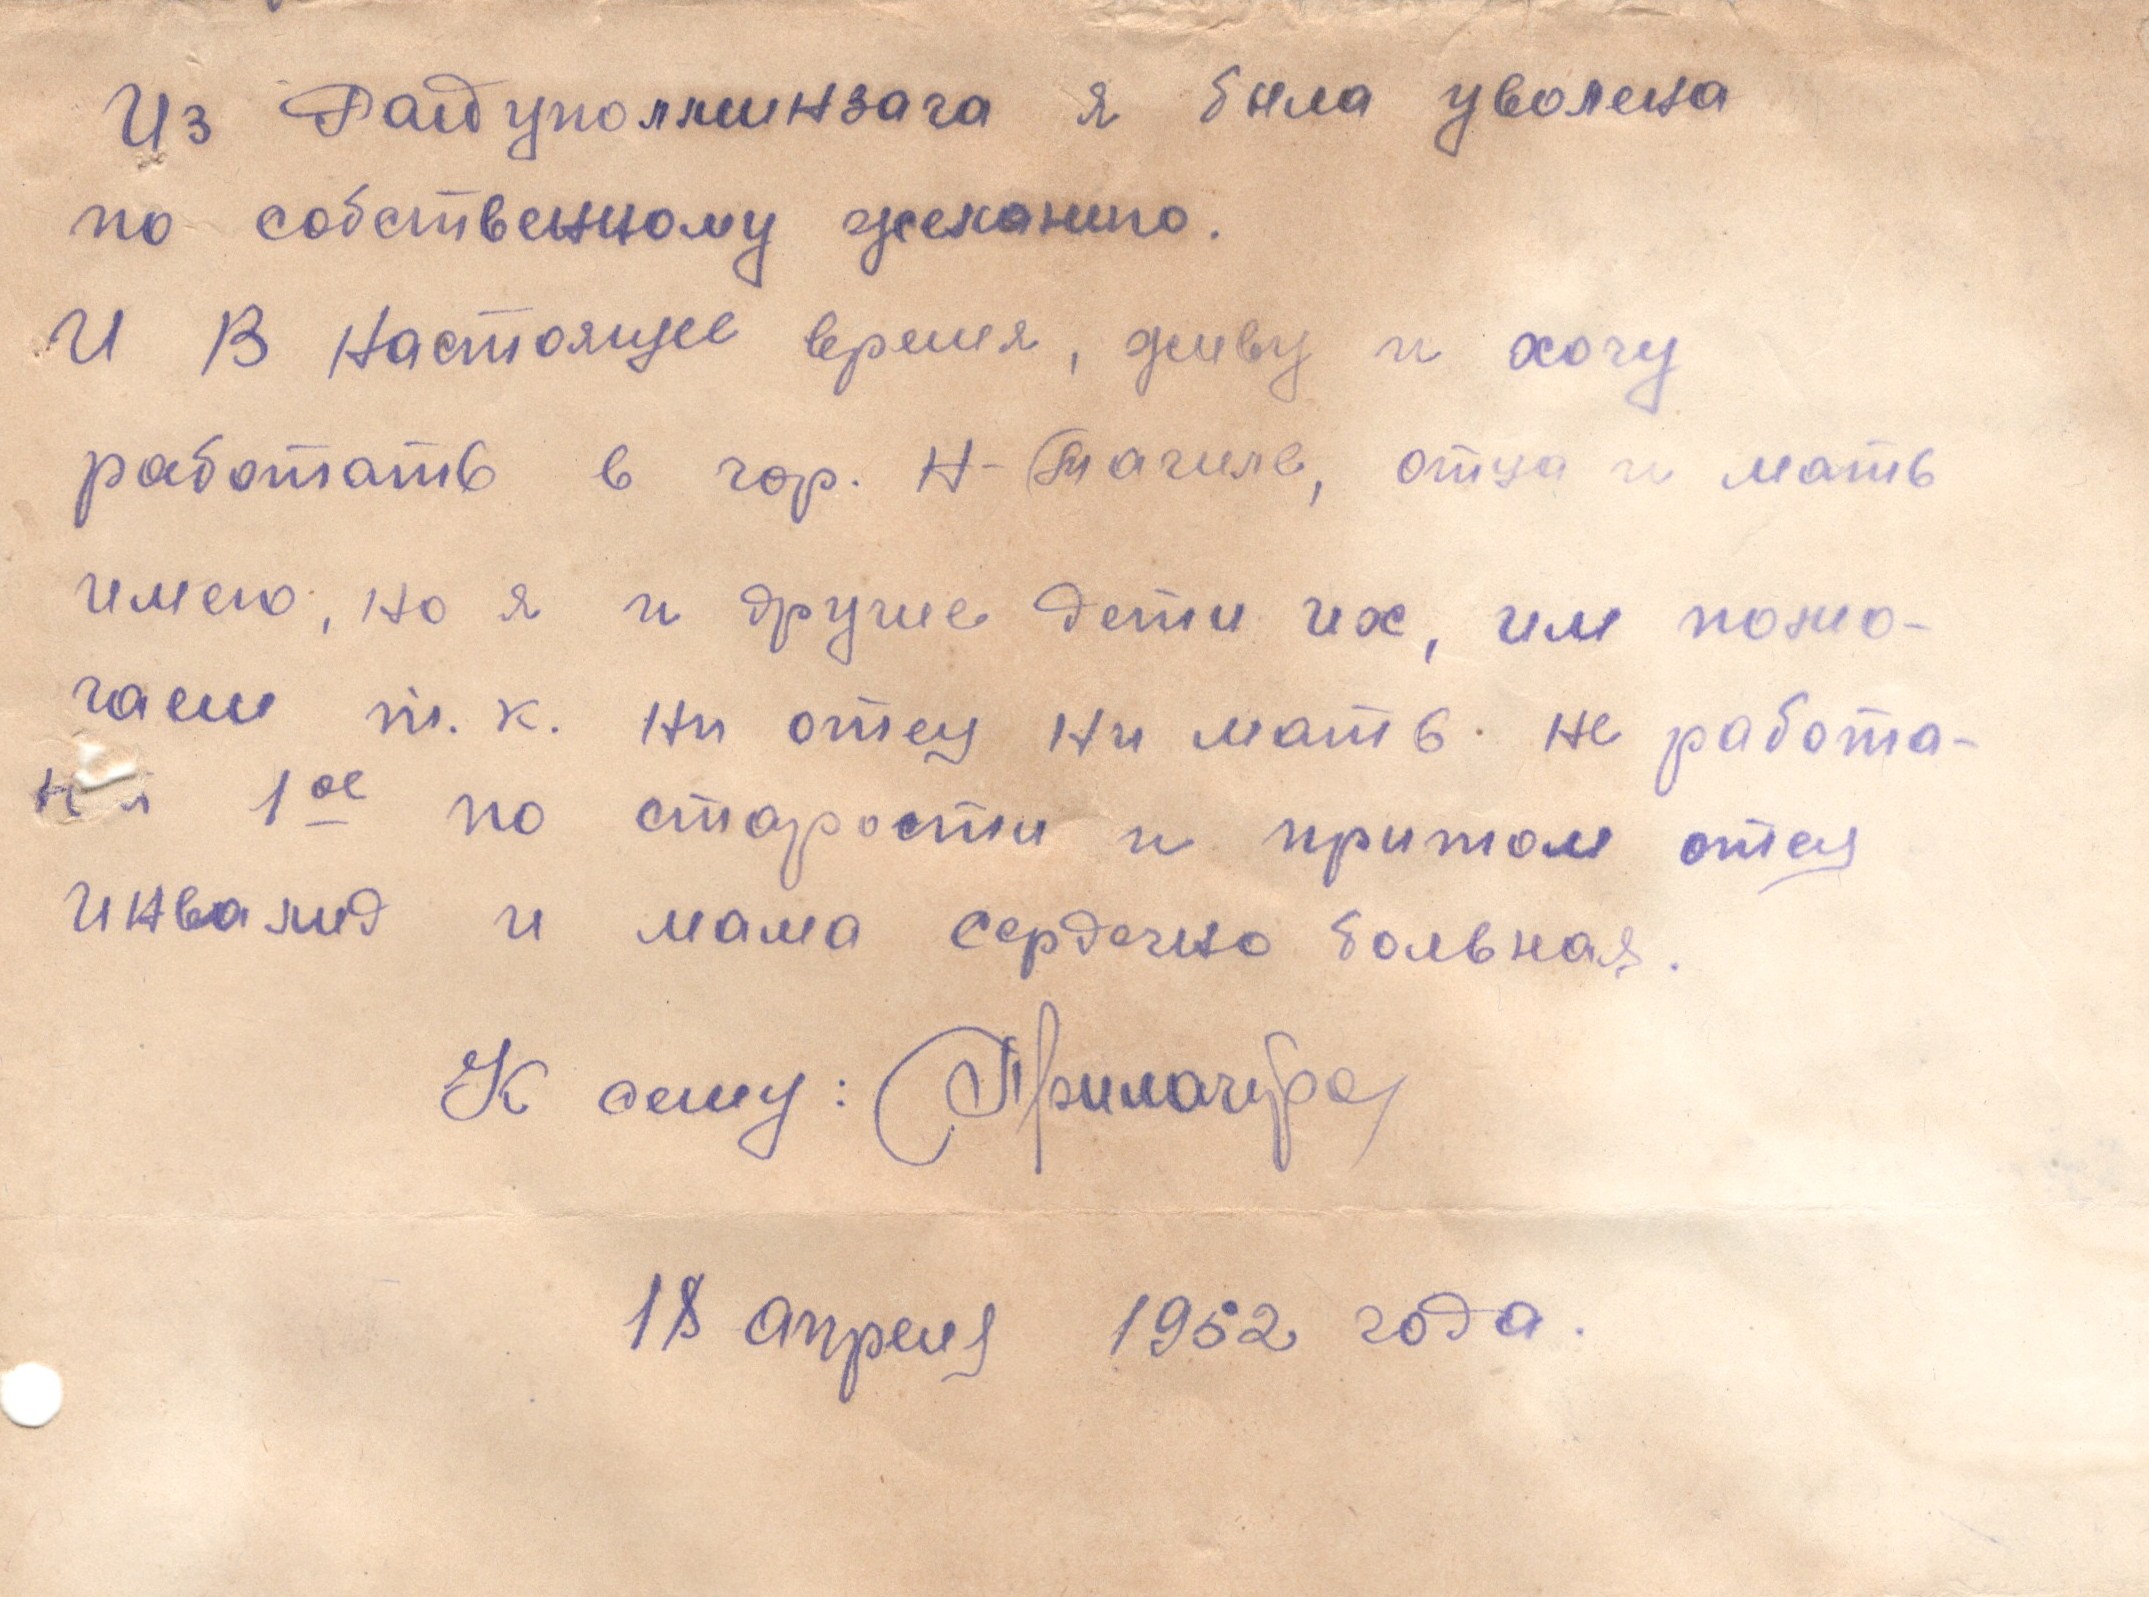 Из Райуполминзага я была уволена
по собственному желанию.
И В настоящее время, живу и хочу
работать в гор. Н-Тагиле, отца и мать
имею, но я и другие дети их, им помо-
гаем т. к. ни отец ни мать не работа-
1ое по старости и притом отец
инвалид и мама сердечно больная.
К сему:
18 апреля 1952 года.